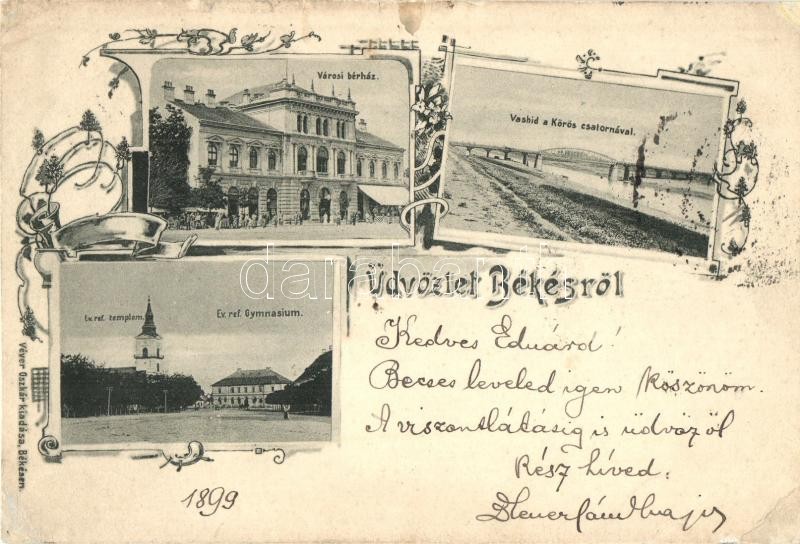 Városi bérház.
Vashid a Körös csatornával.
Üdvözlet Békésről
Ev. ref. templom.
Ev. ref. Gymnasium.
Kedves Eduárd!
Becses leveled igen köszönöm.
A viszontlátásig is üdvözöl
Rész híved.
1899
Véver Oszkár kiadása, Békésen.
darabanth